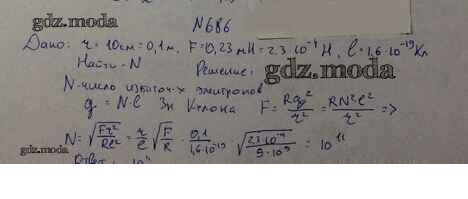 gdz.moda
N686
Дано: r = 10см = 0,1м, F = 0,23мН = 2,3·10⁻⁴Н, e = 1,6·10⁻¹⁹Кл
Найти - N
Решение:
gdz.moda
N-число избыточных электронов
q = N·e Зн Кулона F = Rq²/r² = RN²e²/r² =>
N = √(Fr²/Re²) = r/e √(F/R) · 0,1/1,6·10⁻¹⁹ √(2,3·10⁻⁴/9·10⁹) = 10¹¹
Ответ: 10¹¹
gdz.moda